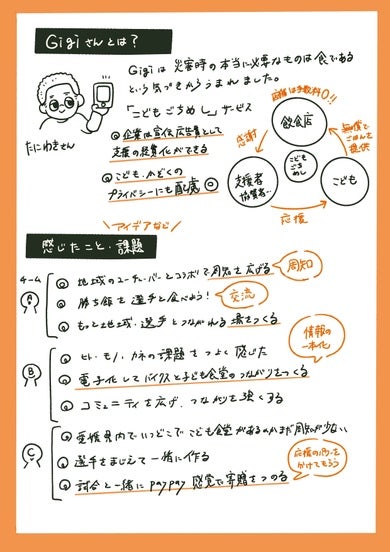 Gigiさんとは？
Gigiは災害時の本当に必要なものは食である
という気づきからうまれました。
「こどもごちめし」サービス
企業は宣伝広告費として
支援の経費化ができる
こども・かぞくの
プライバシーにも配慮
たにわきさん
店側は手数料0!!
飲食店
感謝
無償で
ごはんを
提供
こども
ごち
めし
支援者
協賛者…
こども
応援
アイデアなど
感じたこと・課題
チーム
A
地域のユーチューバーとコラボで周知を広げる
周知
勝ち飯を選手と食べよう！
交流
もっと地域・選手とつながれる場をつくる
情報の
一本化
B
ヒト・モノ・カネの課題をつよく感じた
電子化してバイクスと子ども食堂のつながりをつくる
コミュニティを広げ、つながりを強くする
C
愛媛県内でいつどこでこども食堂があるのかまだ周知が少ない
選手をまじえて一緒に作る
試合と一緒にpaypay感覚で寄贈をつのる
応援のパワーを
かけてもらう